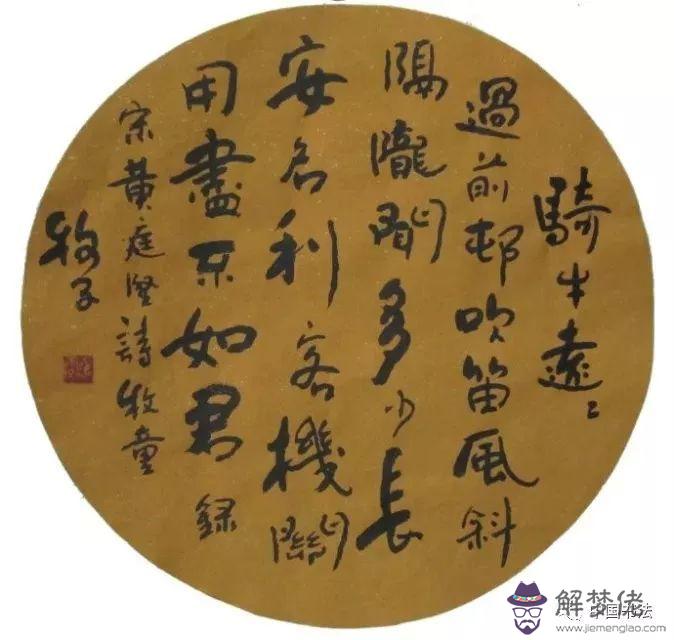 騎牛遠〻
過前邨吹笛風斜
隔隴聞多少長
安名利客機關
用盡不如君 錄
宋黃庭堅詩牧童
中国书法
解梦佬
www.jiemenglao.com